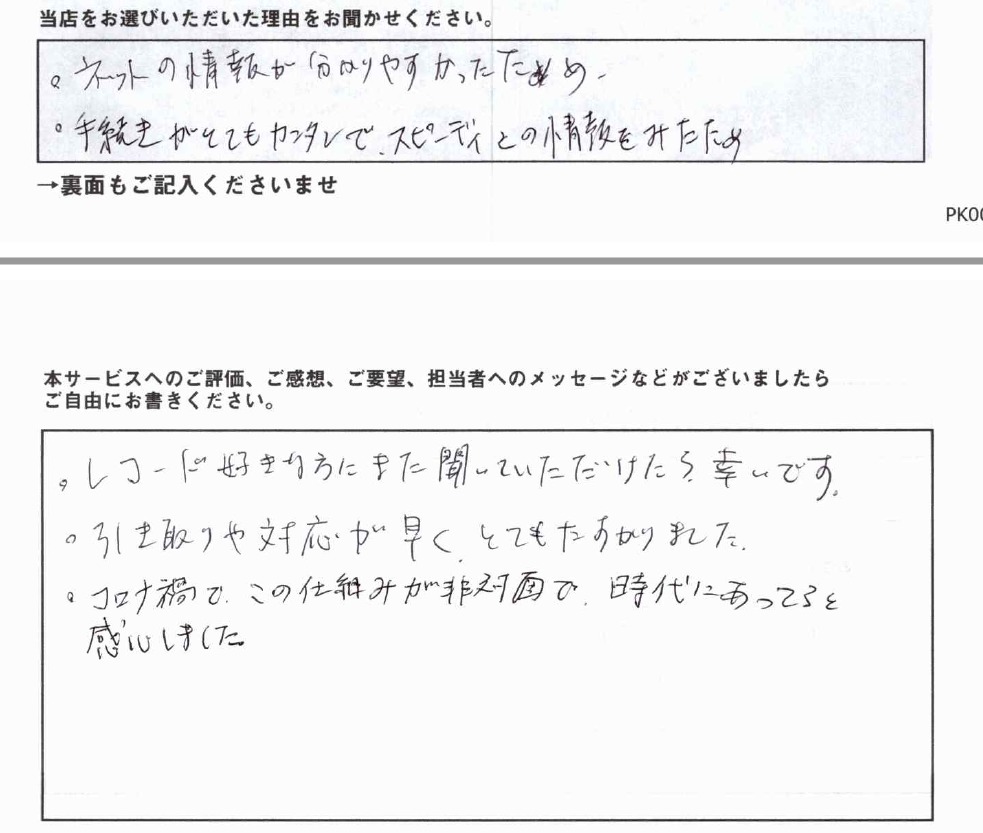 当店をお選びいただいた理由をお聞かせください。
。ネットの情報が分かりやすかったため。
。手続きがとてもカンタンで、スピーディとの情報をみたため
→裏面もご記入くださいませ
PK00
本サービスへのご評価、ご感想、ご要望、担当者へのメッセージなどがございましたら
ご自由にお書きください。
。レコード好きな方にまた聞いていただけたら、幸いです。
。引き取りや対応が早く、とてもたすかりました。
。コロナ禍で、この仕組みが非対面で、時代にあってると
感心しました